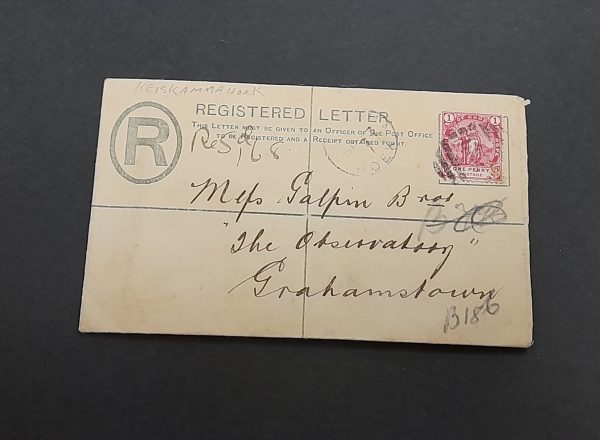 KEISKAMMAHOEK
REGISTERED LETTER
THIS LETTER MUST BE GIVEN TO AN OFFICER OF THE POST OFFICE
TO BE REGISTERED AND A RECEIPT OBTAINED FOR IT.
R
1 1
ONE PENNY
POSTAGE
Regd 168
Mess Galpin Bros
"The Observatory"
Grahamstown
B186